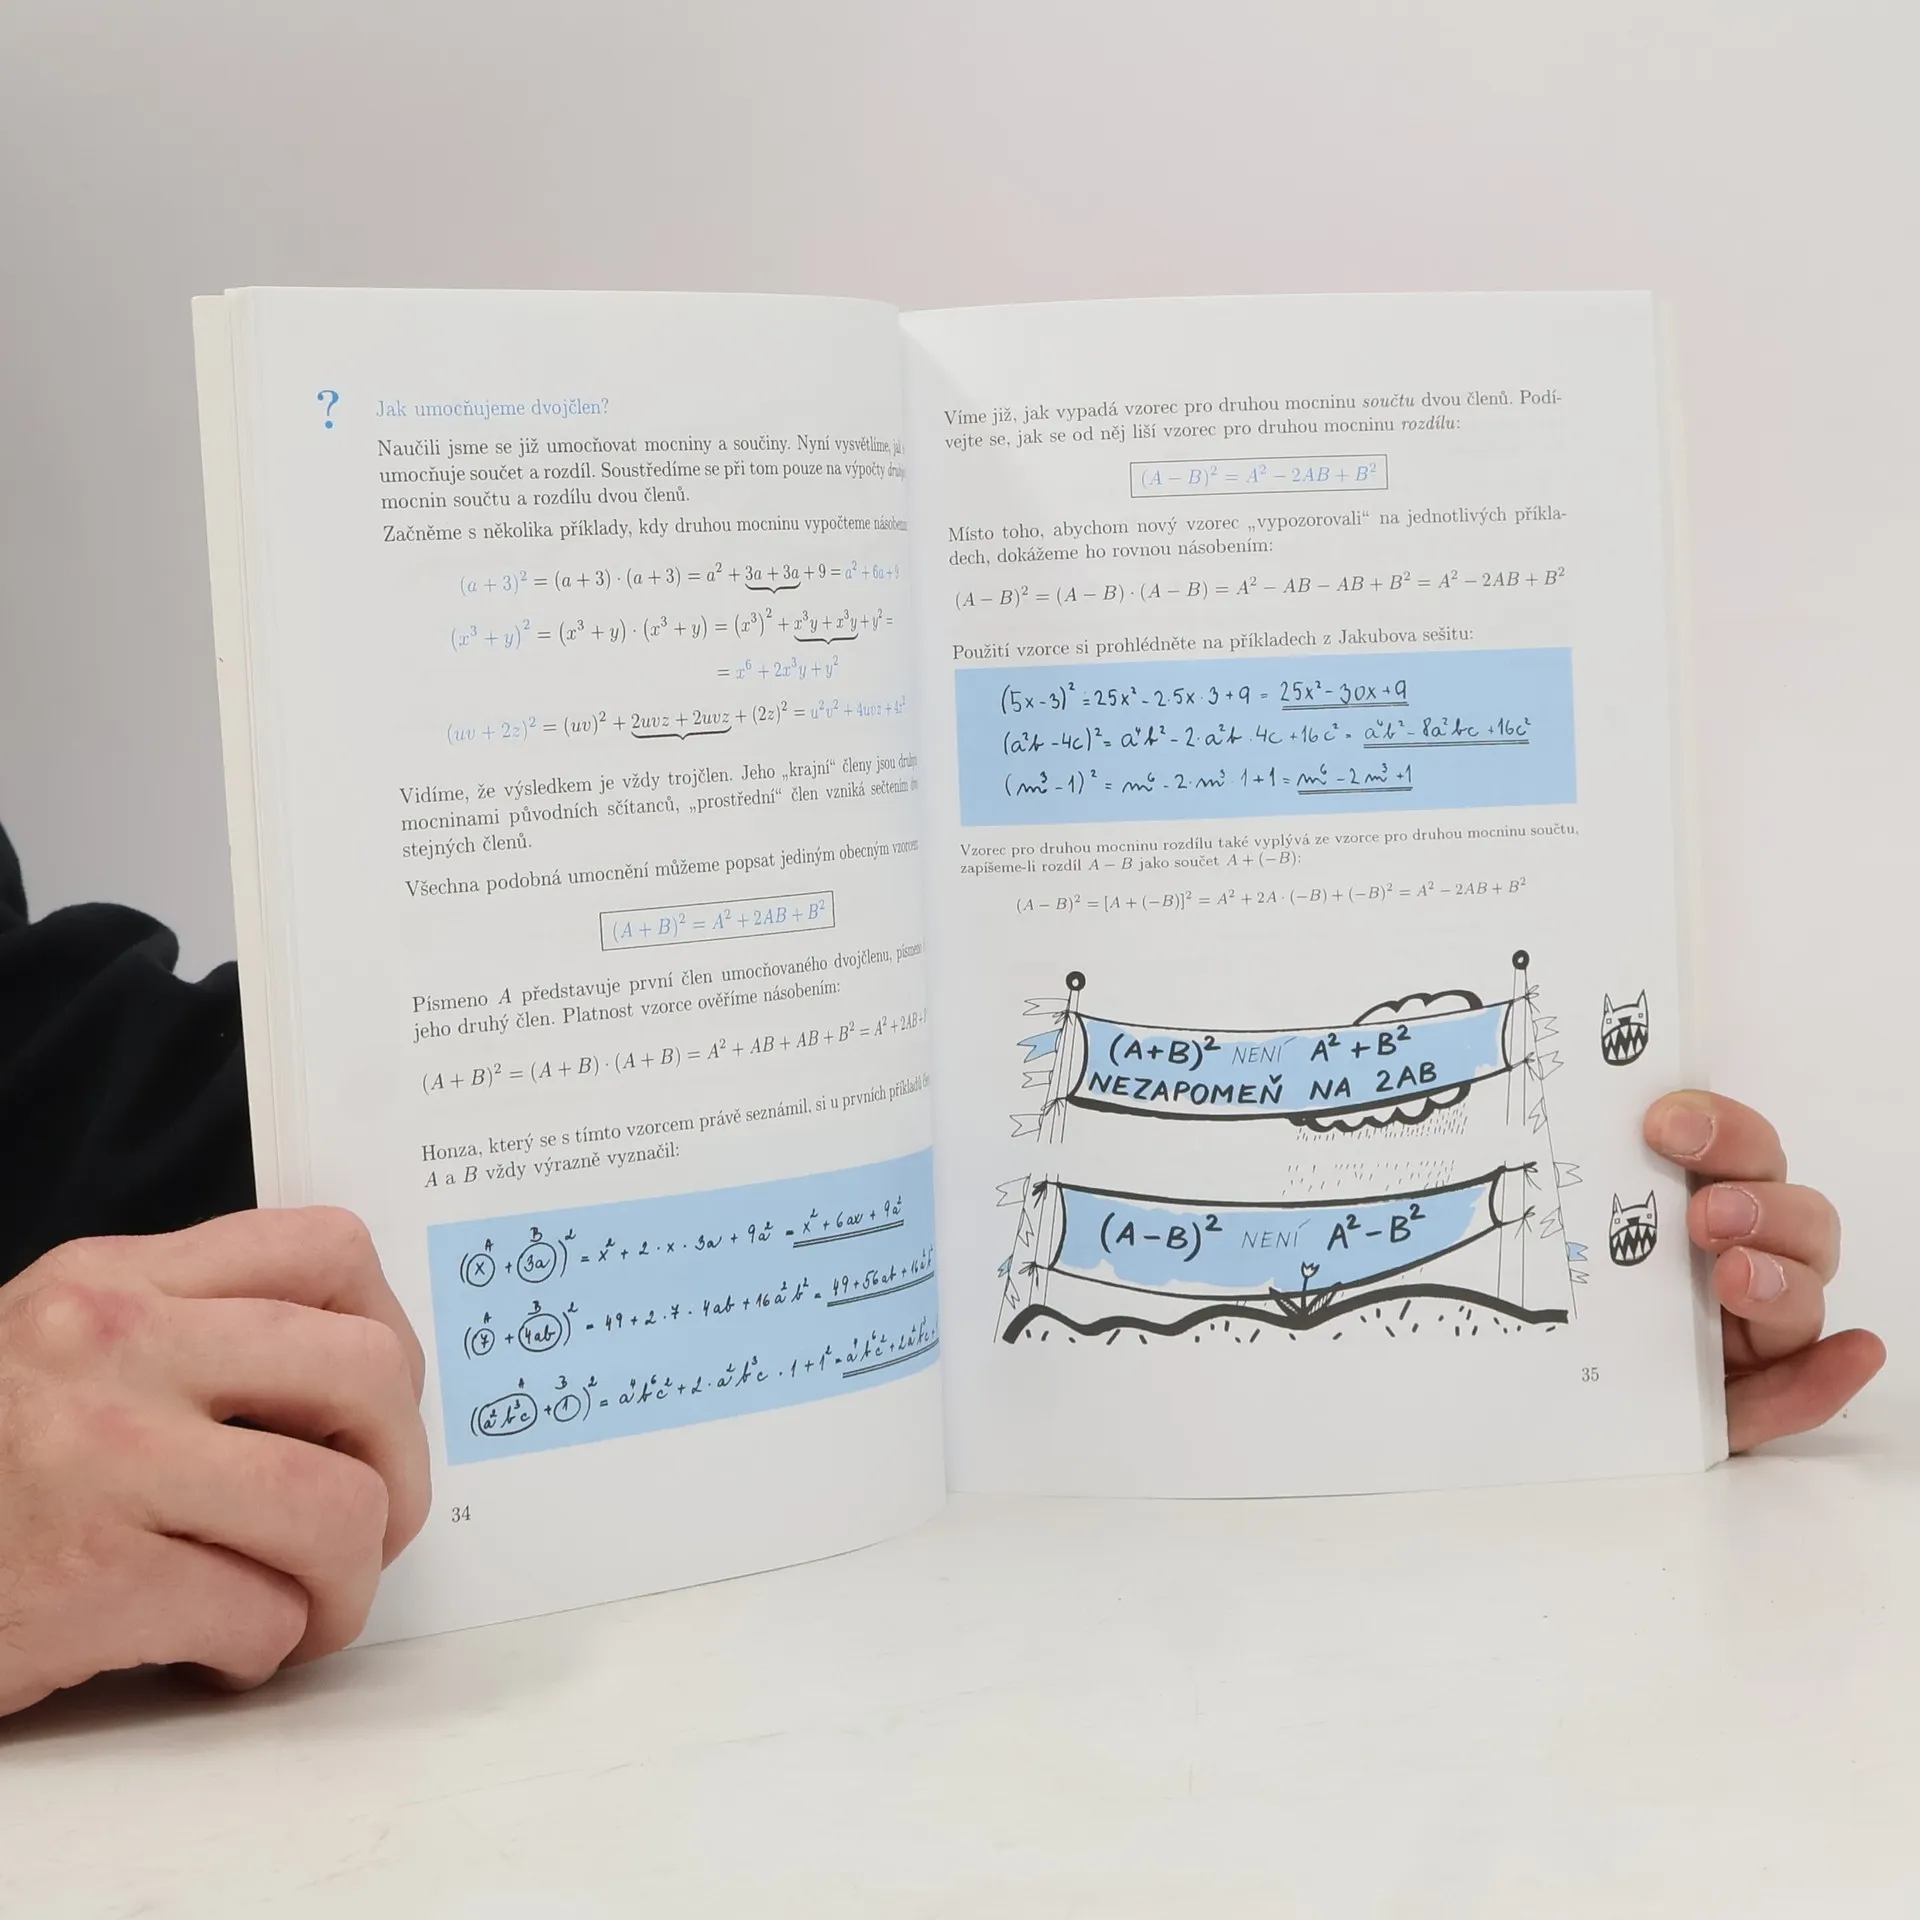 ?
Jak umocňujeme dvojčlen?
Naučili jsme se již umocňovat mocniny a součiny. Nyní vysvětlíme,
umocňuje součet a rozdíl. Soustředíme se při tom pouze na výpočty
mocnin součtu a rozdílu dvou členů.
Začněme s několika příklady, kdy druhou mocninu vypočteme
(a + 3)² = (a + 3) · (a + 3) = a² + 3a + 3a + 9 = a² + 6a + 9
(x³ + y)² = (x³ + y) · (x³ + y) = (x³)² + x³y + x³y + y² =
= x⁶ + 2x³y + y²
(uv + 2z)² = (uv)² + 2uvz + 2uvz + (2z)² = u²v² + 4uvz + 4z²
Vidíme, že výsledkem je vždy trojčlen. Jeho „krajní“ členy jsou
mocninami původních sčítanců, „prostřední“ člen vzniká sečtením
stejných členů.
Všechna podobná umocnění můžeme popsat jediným obecným
(A + B)² = A² + 2AB + B²
Písmeno A představuje první člen umocňovaného dvojčlenu,
jeho druhý člen. Platnost vzorce ověříme násobením:
(A + B)² = (A + B) · (A + B) = A² + AB + AB + B² = A² + 2AB +
Honza, který se s tímto vzorcem právě seznámil, si u prvních příkladů
A a B vždy výrazně vyznačil:
A B
(x + 3a)² = x² + 2 · x · 3a + 9a² = x² + 6ax + 9a²
A B
(7 + 4ab)² = 49 + 2 · 7 · 4ab + 16a²b² = 49 + 56ab + 16a²b²
A B
(a²b³c + 1)² = a⁴b⁶c² + 2 · a²b³c · 1 + 1² = a⁴b⁶c² + 2a²b³c +
34
Víme již, jak vypadá vzorec pro druhou mocninu součtu dvou členů. Podí-
vejte se, jak se od něj liší vzorec pro druhou mocninu rozdílu:
(A − B)² = A² − 2AB + B²
Místo toho, abychom nový vzorec „vypozorovali“ na jednotlivých příkla-
dech, dokážeme ho rovnou násobením:
(A − B)² = (A − B) · (A − B) = A² − AB − AB + B² = A² − 2AB + B²
Použití vzorce si prohlédněte na příkladech z Jakubova sešitu:
(5x-3)² = 25x² - 2·5x·3 + 9 = 25x² - 30x + 9
(a²b - 4c)² = a⁴b² - 2·a²b·4c + 16c² = a⁴b² - 8a²bc + 16c²
(m³ - 1)² = m⁶ - 2·m³·1 + 1 = m⁶ - 2m³ + 1
Vzorec pro druhou mocninu rozdílu také vyplývá ze vzorce pro druhou mocninu součtu,
zapíšeme-li rozdíl A − B jako součet A + (−B):
(A − B)² = [A + (−B)]² = A² + 2A · (−B) + (−B)² = A² − 2AB + B²
(A+B)² NENÍ A²+B²
NEZAPOMEŇ NA 2AB
(A-B)² NENÍ A²-B²
35